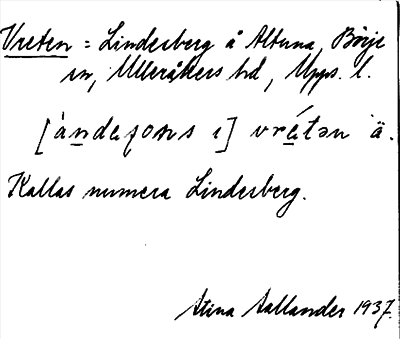 Vreten = Linderberg å Altuna, Börje
sn, Ulleråkers hd, Upps. l.
[ándaʂons ı] vrétən ä.
Kallas numera Linderberg.
Stina Aallander 1937.